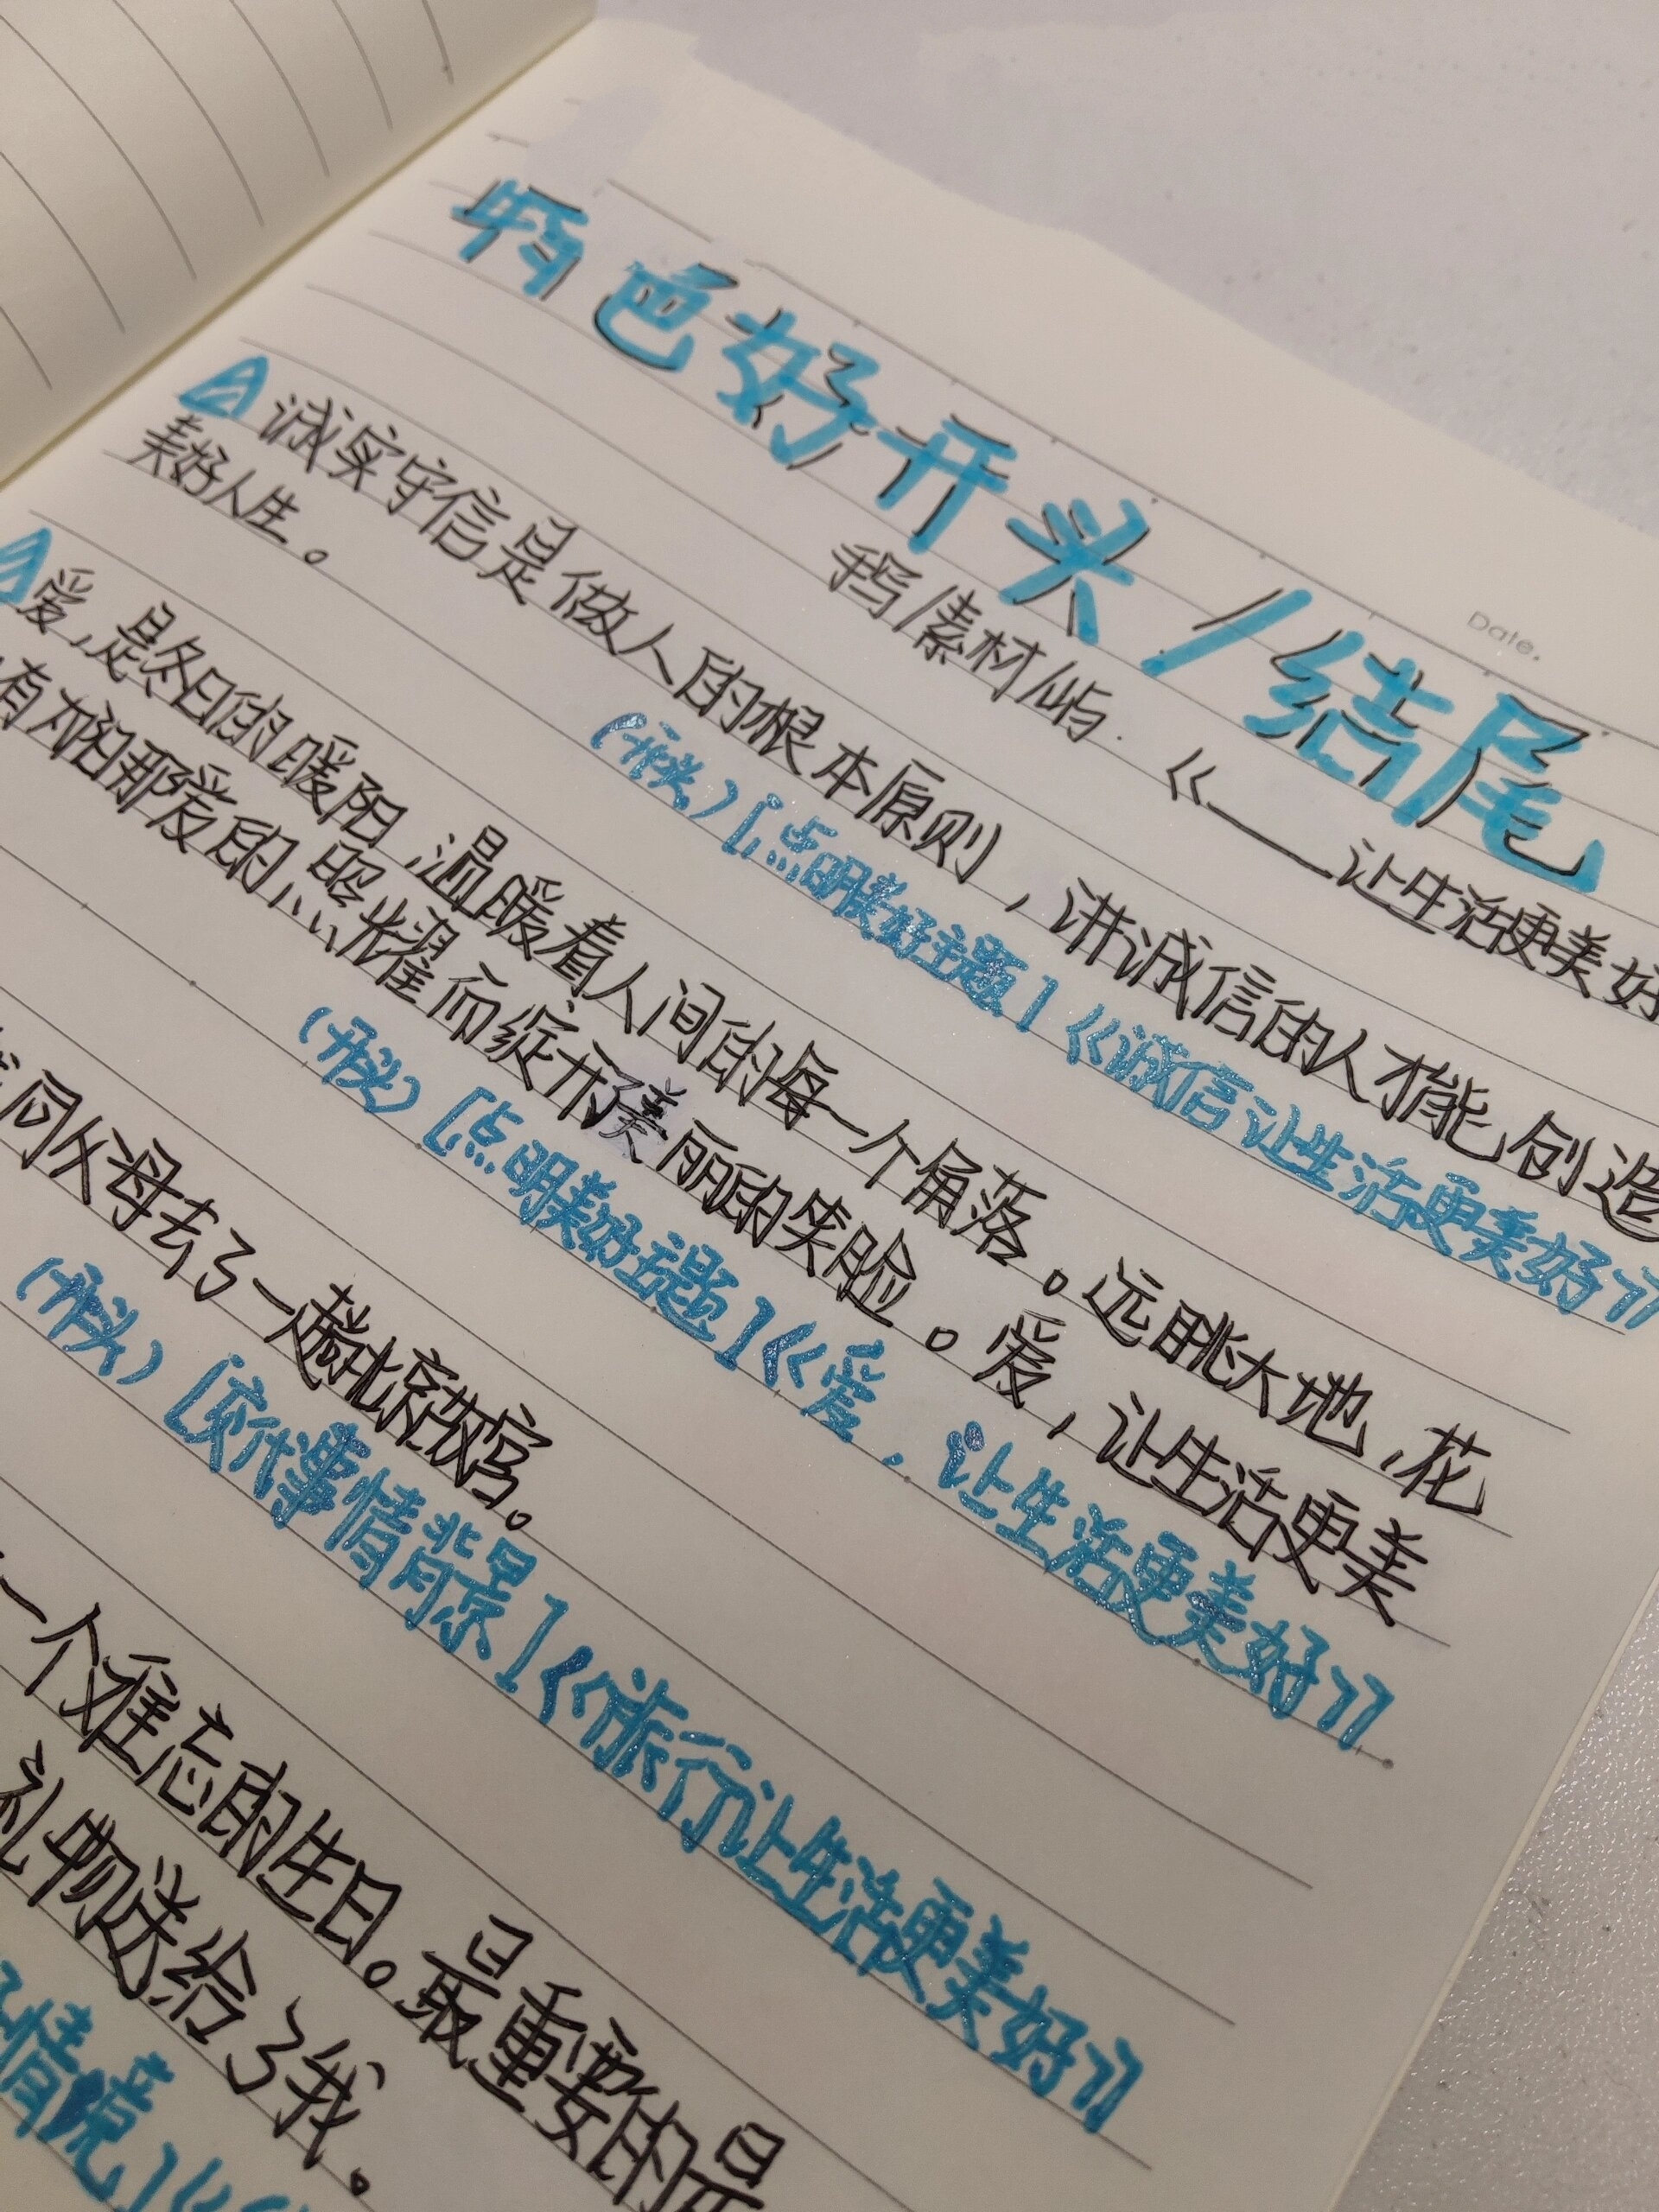 特色好开头/结尾
Date.
摘/素材/屿.《——让生活更美好
诚实守信是做人的根本原则，讲诚信的人才能创造
美好人生。
(开头)[点明美好主题]《诚信让生活更美好》
爱，是冬日的暖阳，温暖着人间的每一个角落。远眺大地，花
有太阳那爱的照耀而绽开美丽的笑脸。爱，让生活更美
(开头)[点明美好主题]《爱，让生活更美好》
同父母去了一趟北京故宫。
(开头)[交代事情背景]《旅行让生活更美好》
一个难忘的生日。最重要的是
礼物送给了我。
情境]《